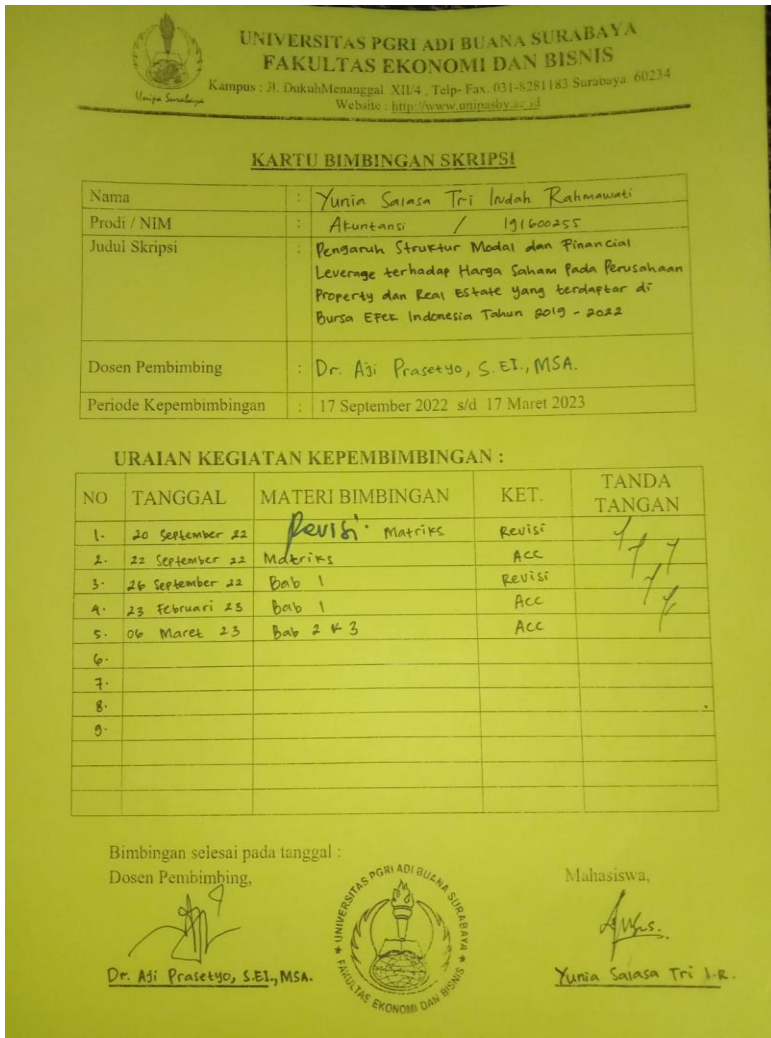 UNIVERSITAS PGRI ADI BUANA SURABAYA
FAKULTAS EKONOMI DAN BISNIS
Kampus : Jl. DukuhMenanggal XII/4 , Telp- Fax. 031-8281183 Surabaya 60234
Website : http://www.unipasby.ac.id
Unipa Surabaya
KARTU BIMBINGAN SKRIPSI
Nama : Yunia Salasa Tri Indah Rahmawati
Prodi / NIM : Akuntansi / 191600255
Judul Skripsi : Pengaruh Struktur Modal dan Financial
Leverage terhadap Harga Saham Pada Perusahaan
Property dan Real Estate yang terdaftar di
Bursa Efek Indonesia Tahun 2019 - 2022
Dosen Pembimbing : Dr. Aji Prasetyo, S.EI., MSA.
Periode Kepembimbingan : 17 September 2022 s/d 17 Maret 2023
URAIAN KEGIATAN KEPEMBIMBINGAN :
NO TANGGAL MATERI BIMBINGAN KET. TANDA TANGAN
1. 20 September 22 Revisi. Matriks Revisi
2. 22 September 22 Matriks Acc
3. 26 September 22 Bab 1 Revisi
4. 23 Februari 23 Bab 1 Acc
5. 06 Maret 23 Bab 2 & 3 Acc
6.
7.
8.
9.
Bimbingan selesai pada tanggal :
Dosen Pembimbing, Mahasiswa,
UNIVERSITAS PGRI ADI BUANA SURABAYA
FAKULTAS EKONOMI DAN BISNIS
Dr. Aji Prasetyo, S.EI., MSA. Yunia Salasa Tri I.R.